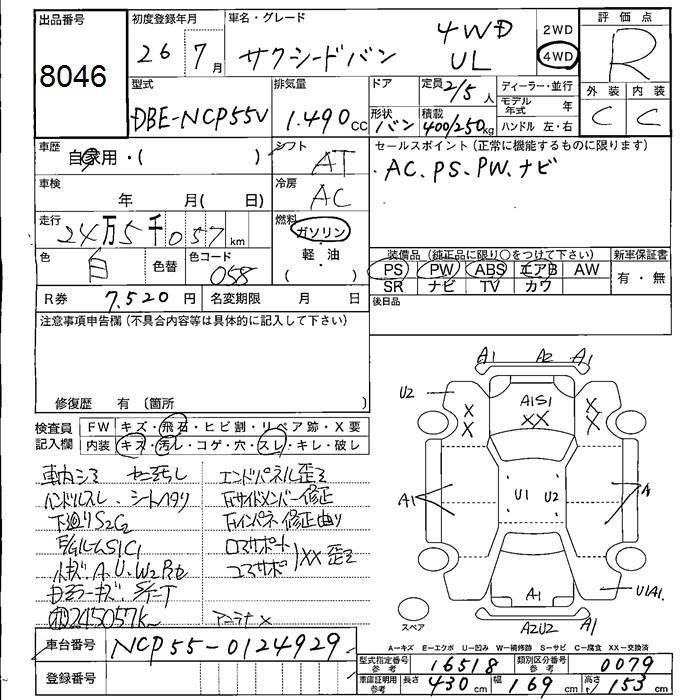 出品番号 初度登録年月 車名・グレード 評価点
8046 26 7月 サクシードバン 4WD UL 2WD 4WD R
型式 排気量 ドア 定員 2/5人 ディーラー・並行 外装 内装
DBE-NCP55V 1.490cc 形状 バン 積載 400/250kg モデル年式 年 C C
ハンドル 左・右
車歴 自家用・( ) シフト AT セールスポイント(正常に機能するものに限ります)
車検 年 月( 日) 冷房 AC AC、PS、PW、ナビ
走行 24万5千057km 燃料 ガソリン
軽・油
( )
色 白 色替 色コード 058 装備品(純正品に限り○をつけて下さい) 新車保証書
PS PW ABS エアB AW 有・無
SR ナビ TV カワ
R券 7,520円 名変期限 月 日 後日品
注意事項申告欄(不具合内容等は具体的に記入して下さい)
修復歴 有 〔箇所 〕
検査員記入欄 FW キズ・飛石・ヒビ割・リペア跡・X要
内装 キズ・汚レ・コゲ・穴・スレ・キレ・破レ
車内シミ エンドパネル歪ミ
ハンドルスレ、シートヘタリ 下サイドメンバー修正
下廻りS2C2 インパネ修正曲り
S1C1 コアサポート
A、U、W2 コアサポ XX 歪ミ
245057k アンテナX
A1 A2 A1
U2 A1S1 X X XX X X
A1 U1 U2 A
A1 U1A1
スペア A2U2 A1
A=キズ E=エクボ U=凹み W=補修跡 S=サビ C=腐食 XX=交換済
車台番号 NCP55-0124929 型式指定番号 参考 16518 類別区分番号 参考 0079
登録番号 車庫証明用 参考 長さ 430cm 幅 169cm 高さ 153cm